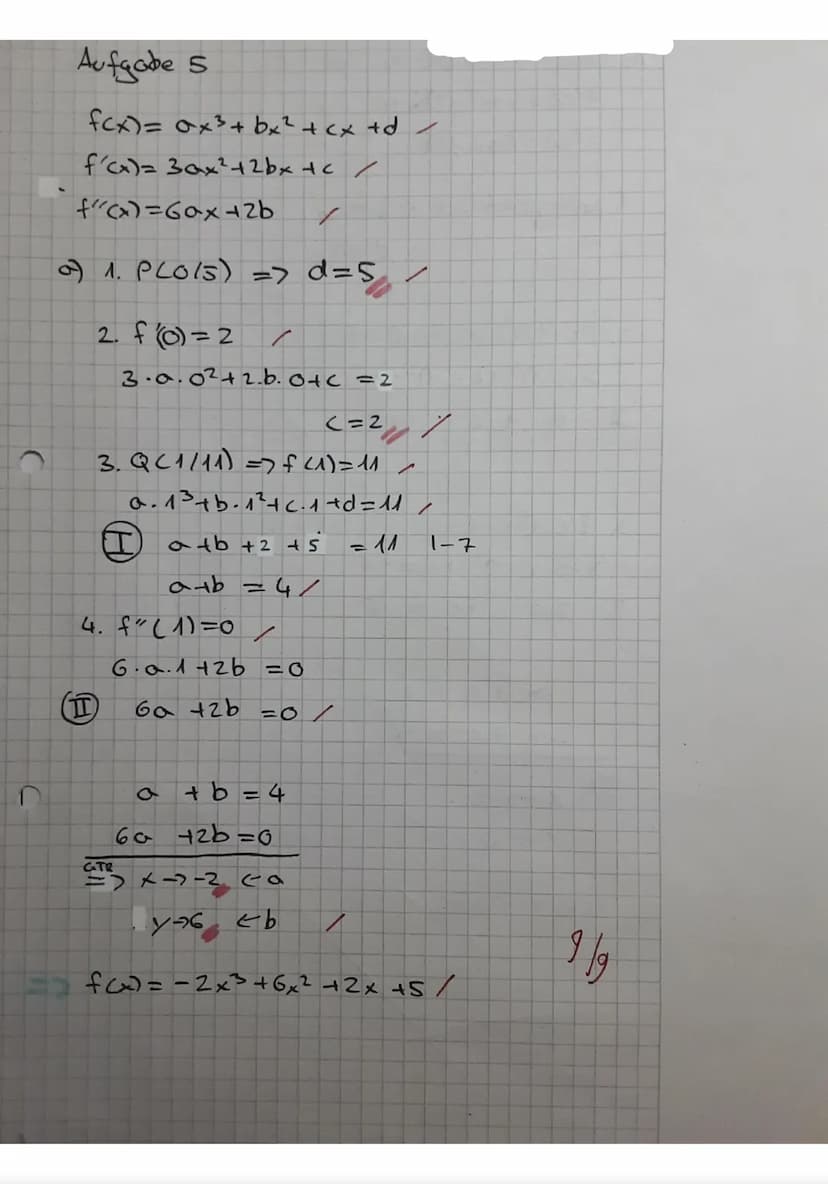 Aufgabe 5
f(x) = ax³ + bx² + cx + d
f'(x) = 3ax² + 2bx + c
f''(x) = 6ax + 2b
a) 1. P(0/5) => d = 5
2. f'(0) = 2
3·a·0² + 2·b·0 + c = 2
c = 2
3. Q(1/11) => f(1) = 11
a·1³ + b·1² + c·1 + d = 11
I a + b + 2 + 5 = 11 |-7
a + b = 4
4. f''(1) = 0
6·a·1 + 2b = 0
II 6a + 2b = 0
a + b = 4
6a + 2b = 0
GTR => x → -2 ← a
y → 6 ← b
9/9
=> f(x) = -2x³ + 6x² + 2x + 5